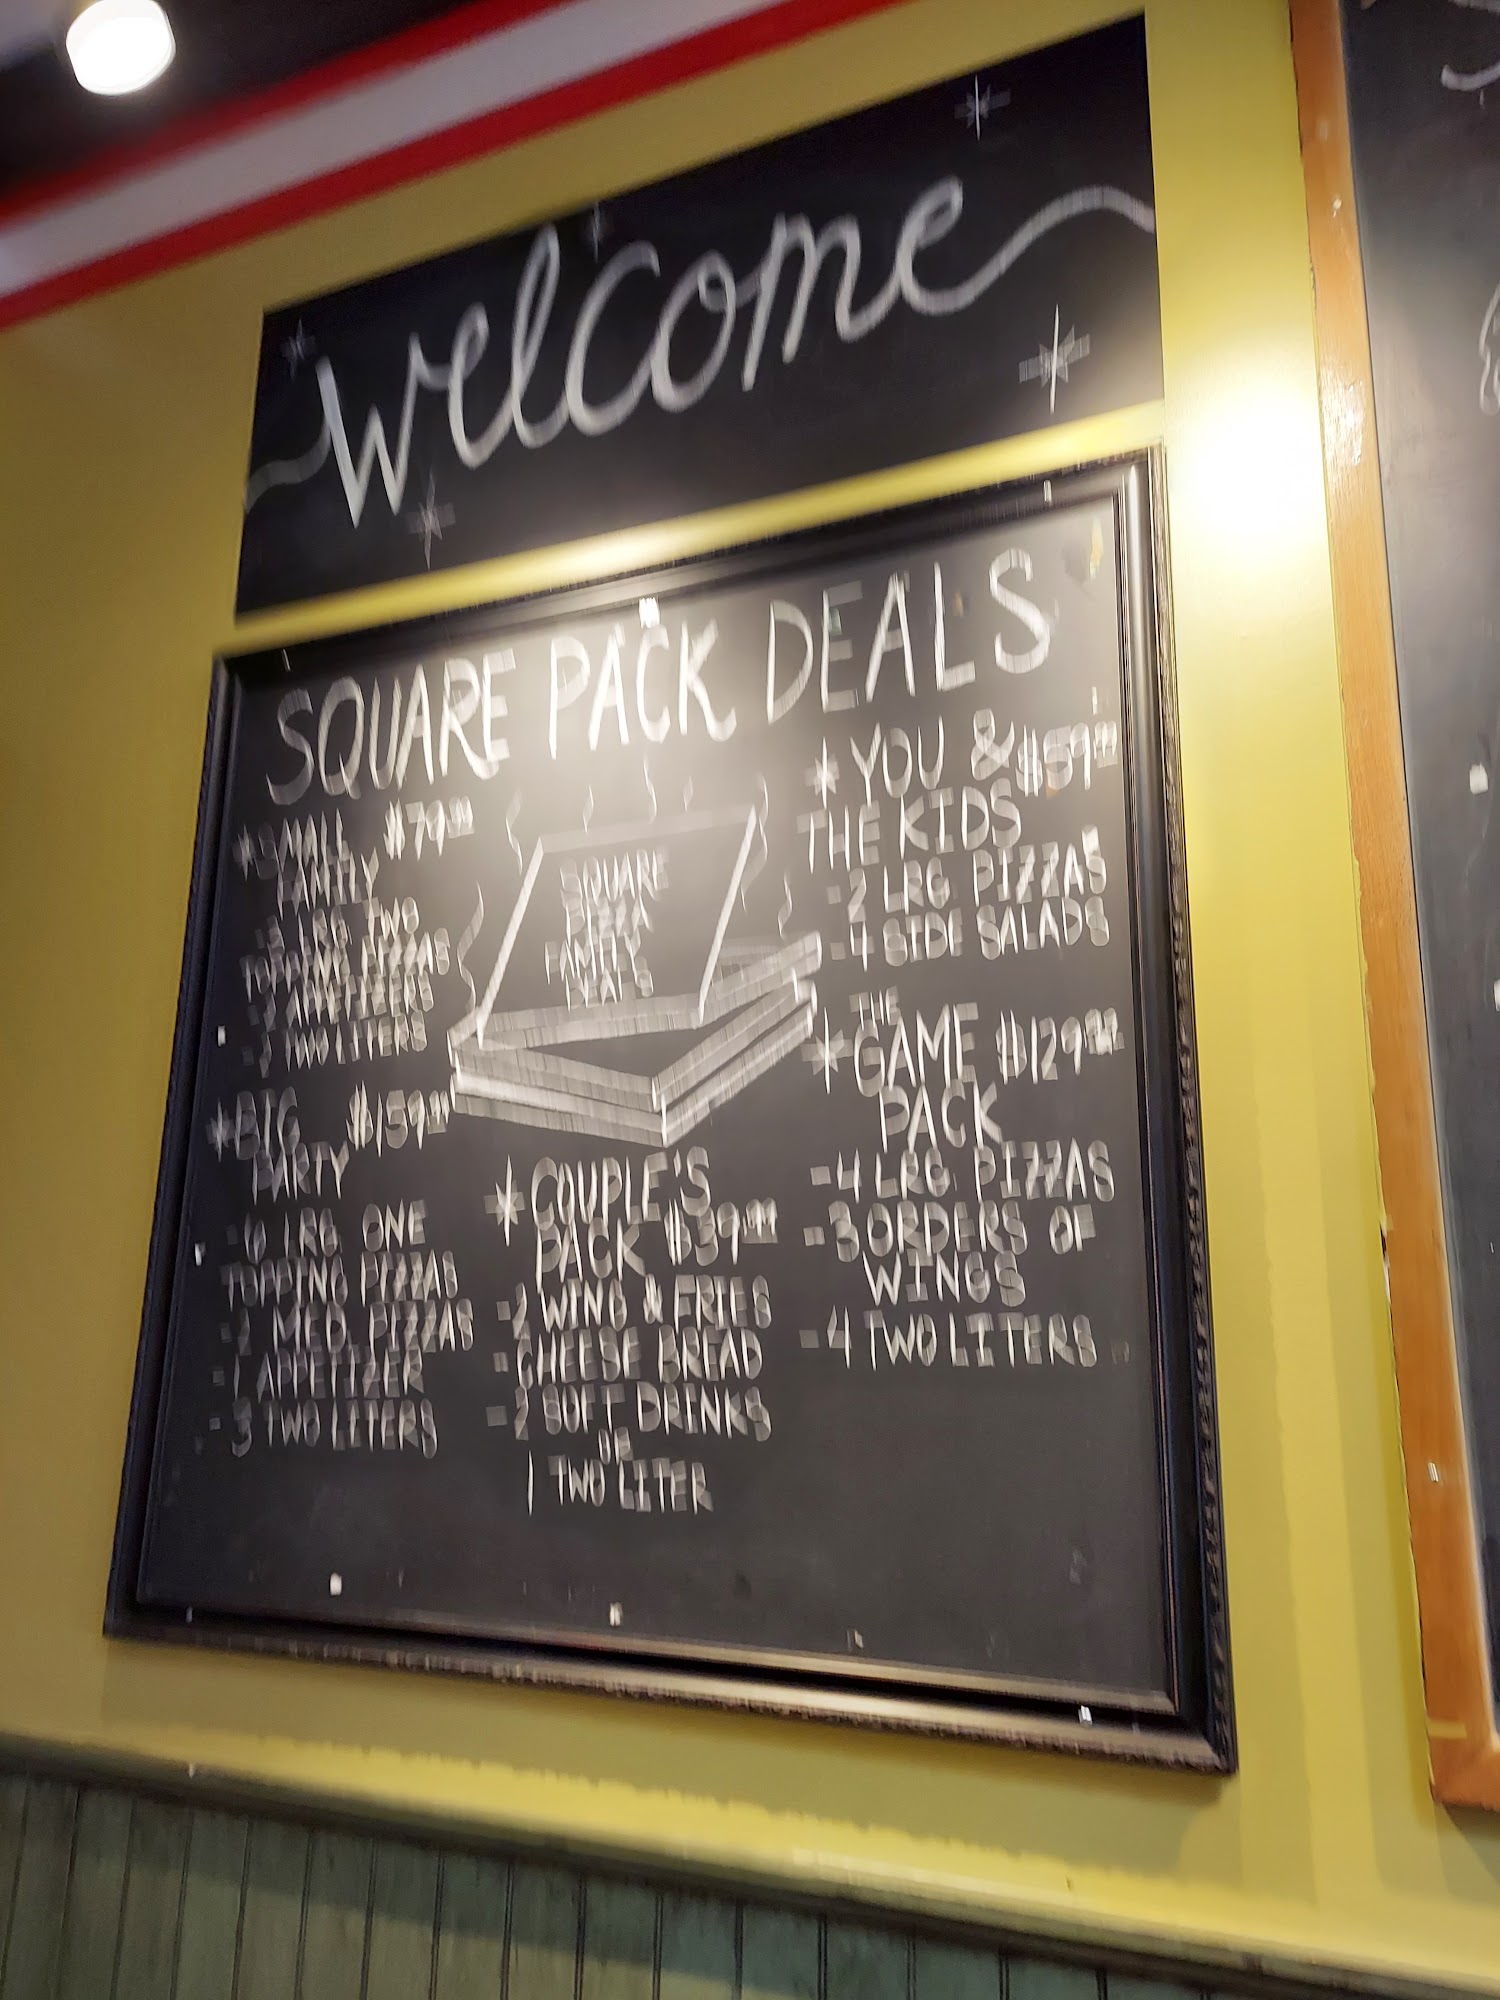 Welcome
SQUARE PACK DEALS
* SMALL $79.99
FAMILY
LRG TWO
TOPPING PIZZAS
- 2 APPETIZERS
- 2 TWO LITERS
* BIG $159.99
PARTY
- 6 LRG ONE
TOPPING PIZZAS
- 2 MED. PIZZAS
- 1 APPETIZER
- 3 TWO LITERS
SQUARE
PIZZA
FAMILY
DEALS
* COUPLE'S
PACK $39.99
- 2 WING & FRIES
- CHEESE BREAD
- 2 SOFT DRINKS
OR
1 TWO LITER
* YOU & $59.99
THE KIDS
- 2 LRG PIZZAS
- 4 SIDE SALADS
THE
* GAME $129.99
PACK
- 4 LRG PIZZAS
- 3 ORDERS OF
WINGS
- 4 TWO LITERS